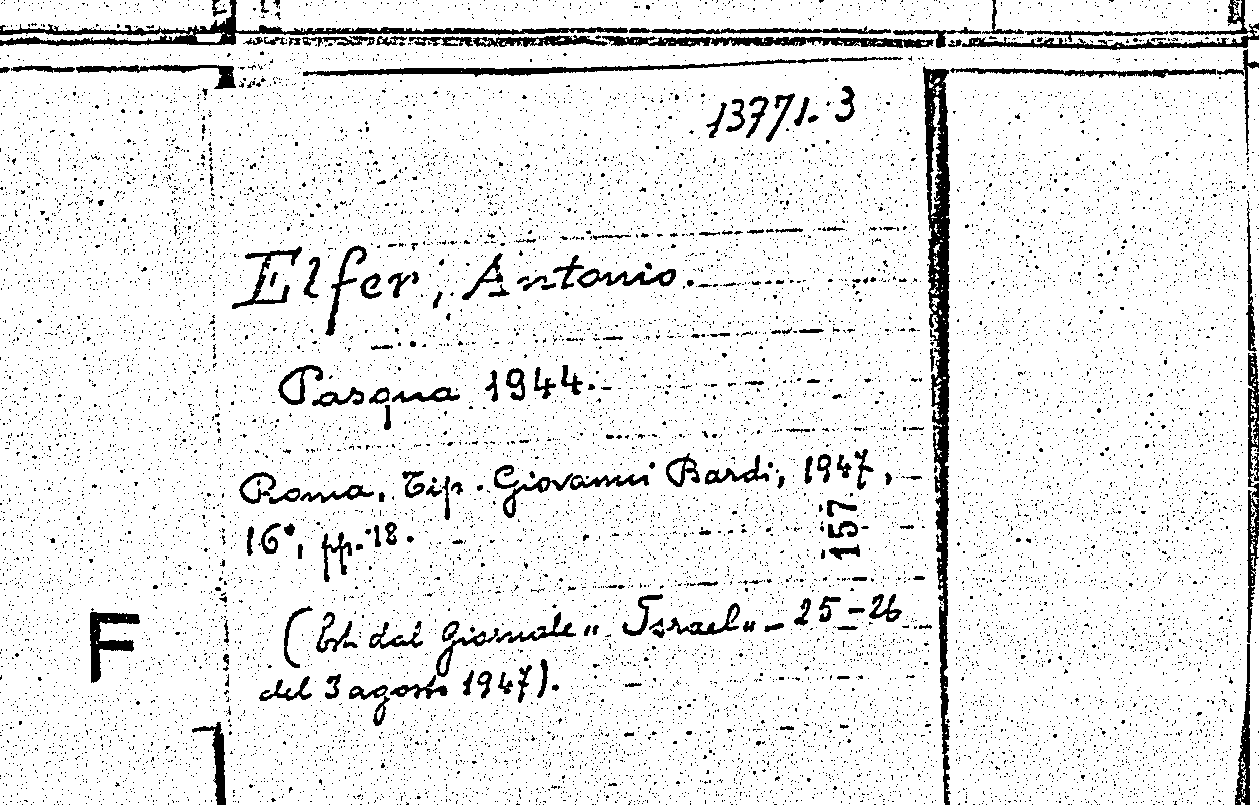 13771.3
Elfer, Antonio.
Pasqua 1944.
Roma, Tip. Giovanni Bardi, 1947,
16°, pp. 18.
157
(Est. dal Giornale „ Israel „ - 25-26
del 3 agosto 1947).
F